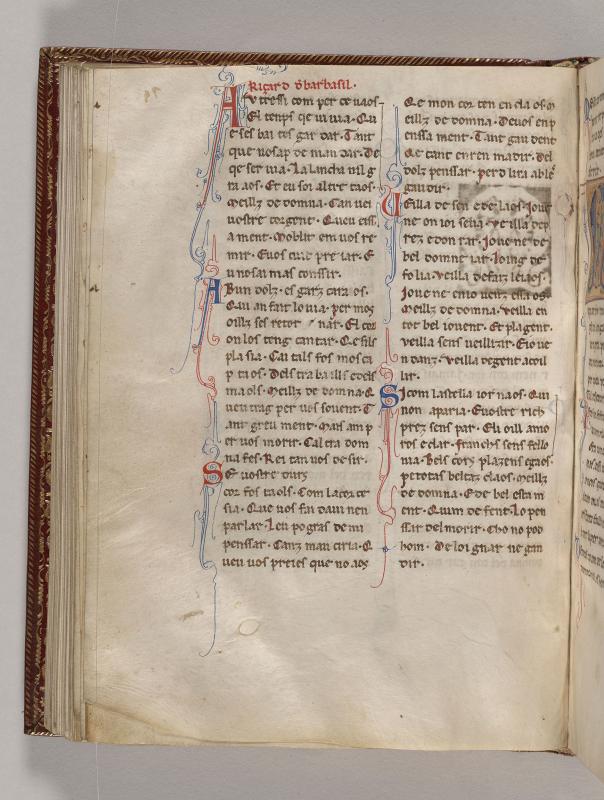 Riçard d'barbasil.
Atressi com per ce uaus
El temps qe uiuia. Qu
e ses bai tos gar dar. Tant
que no sap de man dar. De
qe ser uia. La lancha nil g
ra aos. Et eu soi altre taos.
Meillz de domna. Can uei
uostre corgent. Queu eiss
a ment. Moblit em uos re
mir. Euos cuit pre iar. E
unosai mas conssir.
Abun dolz. es garz
Qui an fait lo uia. per mos
oillz ses retor nar. El cor
on los teng can tar. Qe sils
pla sia. Cai tals fos mos ca
p ta os. Dels tra ba ills edels
ma ols. Meillz de domna. Q
ueu trag per uos souent. T
ant greu ment. Mais am p
er uos morir. Cal tra dom
na ses. Rei tan uos de sir.
Se uostre durs
cor fos taols. Com la cor te
sia. Que uos fai dam nen
par lar. Leu po gras de mi
penssar. Canz mau ciria. Q
ueu uos preies que no aos
Qe mon cor ten en cla os. M
eillz de domna. De uos enp
enssa ment. Tant gau dent
Qe cant en ren ma dir. Del
dolz penssar. perd lira able
gau dir.
Veilla de sen e de laos. Joue
ne on ioi seina. Ve illa de p
rez e don rar. Joue ne de
bel domne iar. Loing de
fo lia. Veilla de faiz leiaos.
Joue ne cuio uenz essa os.
Meillz de domna. Veilla en
tot bel iouent. Et pla gent.
veilla sens ueillezir. E io ue
n danz. Veilla de gent acoil
lir.
Si com lastella ior naos. Qui
non aparia. Euostre rich
prez sens par. Eli oill amo
ros e clar. Franchs sens fello
nia. Bels cors plazens e gaos.
pe totas beltaz claos. Meillz
de domna. E de bel esta m
ent. Quim de fent. Lo pen
ssir del morir. Cho no pod
hom. De loi gnar ne gan
dir.